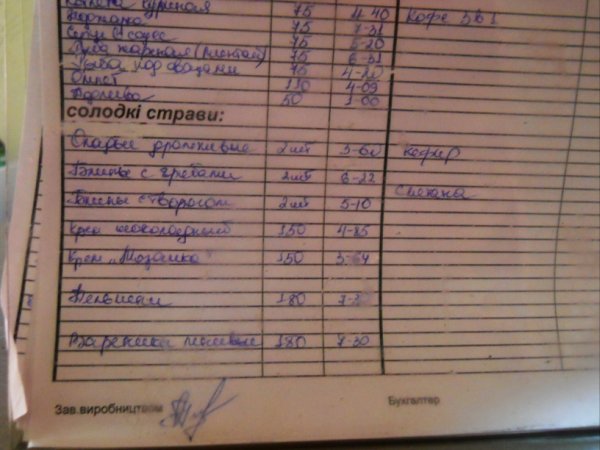 Котлета куриная 75 4-40 Кофе 3в1
Поджарка 75 7-31
Сердце в соусе 75 5-20
Рыба жареная (минтай) 75 6-31
Рыба под овощами 75
Омлет 110 4-09
Подлива 50 1-00
солодкі страви:
Оладьи дрожжевые 2шт 3-60 кефир
Блины с грибами 2шт 6-22
сметана
Блины с творогом 2шт 5-10
Крем шоколадный 150 4-85
Крем „Мозаика" 150 3-64
Пельмени 180
Вареники ленивые 180 7-30
Зав.виробництвом Бухгалтер